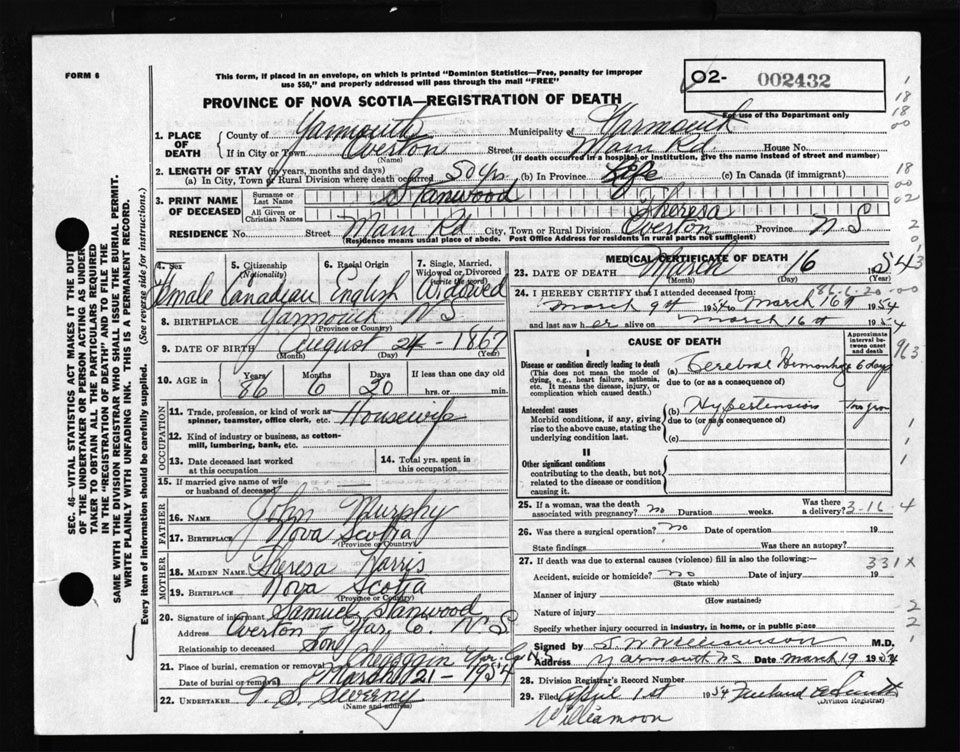 FORM 6
This form, if placed in an envelope, on which is printed "Dominion Statistics—Free, penalty for improper
use $50," and properly addressed will pass through the mail "FREE"
O2- 002432
For use of the Department only
PROVINCE OF NOVA SCOTIA—REGISTRATION OF DEATH
1. PLACE OF DEATH
County of Yarmouth Municipality of Yarmouth
If in City or Town Overton Street Main Rd House No.
(Name) (If death occurred in a hospital or institution, give the name instead of street and number)
2. LENGTH OF STAY (in years, months and days)
(a) In City, Town or Rural Division where death occurred 50 yrs. (b) In Province Life (c) In Canada (if immigrant)
3. PRINT NAME OF DECEASED
Surname or Last Name Stanwood
All Given or Christian Names Theresa
RESIDENCE No. Street Main Rd City, Town or Rural Division Overton Province N S
(Residence means usual place of abode. Post Office Address for residents in rural parts not sufficient)
4. Sex Female
5. Citizenship (Nationality) Canadian
6. Racial Origin English
7. Single, Married, Widowed or Divorced (write the word) Widowed
8. BIRTHPLACE Yarmouth N S
(Province or Country)
9. DATE OF BIRTH August 24 - 1867
(Month) (Day) (Year)
10. AGE in Years 86 Months 6 Days 20 If less than one day old
hrs. or min.
OCCUPATION
11. Trade, profession, or kind of work as spinner, teamster, office clerk, etc. Housewife
12. Kind of industry or business, as cotton-mill, lumbering, bank, etc.
13. Date deceased last worked at this occupation
14. Total yrs. spent in this occupation
15. If married give name of wife or husband of deceased
FATHER
16. NAME John Murphy
17. BIRTHPLACE Nova Scotia
(Province or Country)
MOTHER
18. MAIDEN NAME Theresa Harris
19. BIRTHPLACE Nova Scotia
(Province or Country)
20. Signature of informant Samuel Stanwood
Address Overton - Yar. Co. N S
Relationship to deceased Son
21. Place of burial, cremation or removal Yar. Co. N S
Date of burial or removal March 21 - 1954
22. UNDERTAKER V. S. Sweeny
(Name and address)
MEDICAL CERTIFICATE OF DEATH
23. DATE OF DEATH March 16 1954
24. I HEREBY CERTIFY that I attended deceased from:
86-6-20
March 9th 1954 to March 16th 1954
and last saw her alive on March 16th 1954
CAUSE OF DEATH
Approximate interval between onset and death
I
Disease or condition directly leading to death
(This does not mean the mode of dying, e.g., heart failure, asthenia, etc. It means the disease, injury, or complication which caused death.)
(a) Cerebral Hemorrhage 6 days
due to (or as a consequence of)
Antecedent causes
Morbid conditions, if any, giving rise to the above cause, stating the underlying condition last.
(b) Hypertension
due to (or as a consequence of)
(c)
II
Other significant conditions
contributing to the death, but not related to the disease or condition causing it.
25. If a woman, was the death associated with pregnancy? no Duration weeks. Was there a delivery?
3-16 4
26. Was there a surgical operation? no Date of operation 19
State findings Was there an autopsy?
27. If death was due to external causes (violence) fill in also the following:—
331X
Accident, suicide or homicide? no Date of injury 19
(State which)
Manner of injury
(How sustained)
Nature of injury
Specify whether injury occurred in industry, in home, or in public place
Signed by S. W. Williamson M.D.
Address Yarmouth NS Date March 19 1954
28. Division Registrar's Record Number
29. Filed April 1st 1954
(Division Registrar)
Williamson
SEC. 46—VITAL STATISTICS ACT MAKES IT THE DUTY
OF THE UNDERTAKER OR PERSON ACTING AS UNDER-
TAKER TO OBTAIN ALL THE PARTICULARS REQUIRED
IN THE "REGISTRATION OF DEATH" AND TO FILE THE
SAME WITH THE DIVISION REGISTRAR WHO SHALL ISSUE THE BURIAL PERMIT.
WRITE PLAINLY WITH UNFADING INK. THIS IS A PERMANENT RECORD.
Every item of information should be carefully supplied. (See reverse side for instructions.)